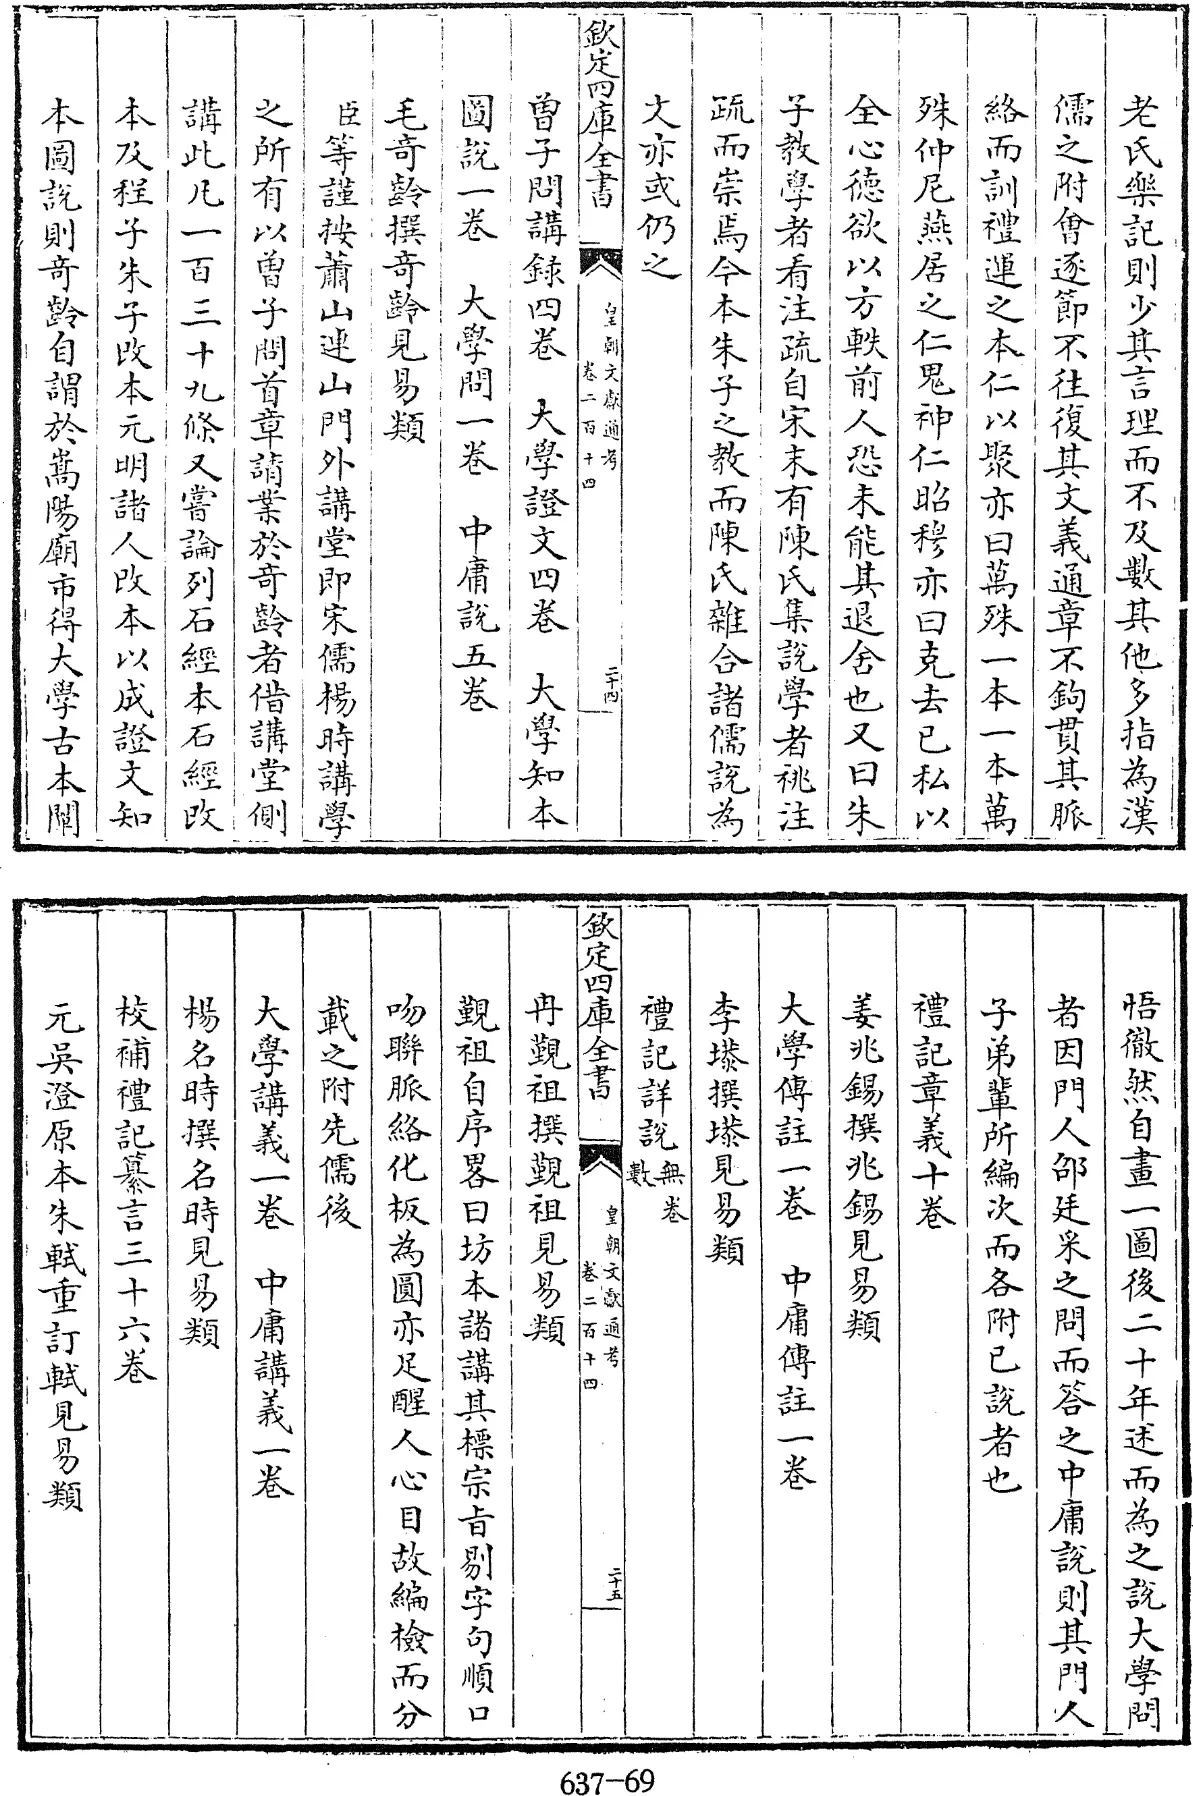 老氏樂記則少其言理而不及數其他多指為漢
儒之附會逐節不往復其文義通章不鉤貫其脈
絡而訓禮運之本仁以聚亦曰萬殊一本一本萬
殊仲尼燕居之仁鬼神仁昭穆亦曰克去已私以
全心德欲以方軼前人恐未能其退舍也又曰朱
子教學者看注疏自宋末有陳氏集説學者祧注
疏而崇焉今本朱子之教而陳氏雜合諸儒説為
文亦或仍之
欽定四庫全書
皇朝文獻通考
卷二百十四
二十四
曾子問講録四卷 大學證文四卷 大學知本
圖説一卷 大學問一卷 中庸説五卷
毛奇齡撰奇齡見易類
臣等謹按蕭山連山門外講堂即宋儒楊時講學
之所有以曾子問首章請業於奇齡者借講堂側
講此凡一百三十九條又嘗論列石經本石經改
本及程子朱子改本元明諸人改本以成證文知
本圖説則奇齡自謂於嵩陽廟市得大學古本闡
悟徹然自畫一圖後二十年述而為之説大學問
者因門人邵廷采之問而答之中庸説則其門人
子弟輩所編次而各附已説者也
禮記章義十卷
姜兆錫撰兆錫見易類
大學傳註一卷 中庸傳註一卷
李塨撰塨見易類
禮記詳説無卷數
欽定四庫全書
皇朝文獻通考
卷二百十四
二十五
冉覲祖撰覲祖見易類
覲祖自序畧曰坊本諸講其標宗旨剔字句順口
吻聯脈絡化板為圓亦足醒人心目故編檢而分
載之附先儒後
大學講義一卷 中庸講義一卷
楊名時撰名時見易類
校補禮記纂言三十六卷
元吳澄原本朱軾重訂軾見易類
637-69